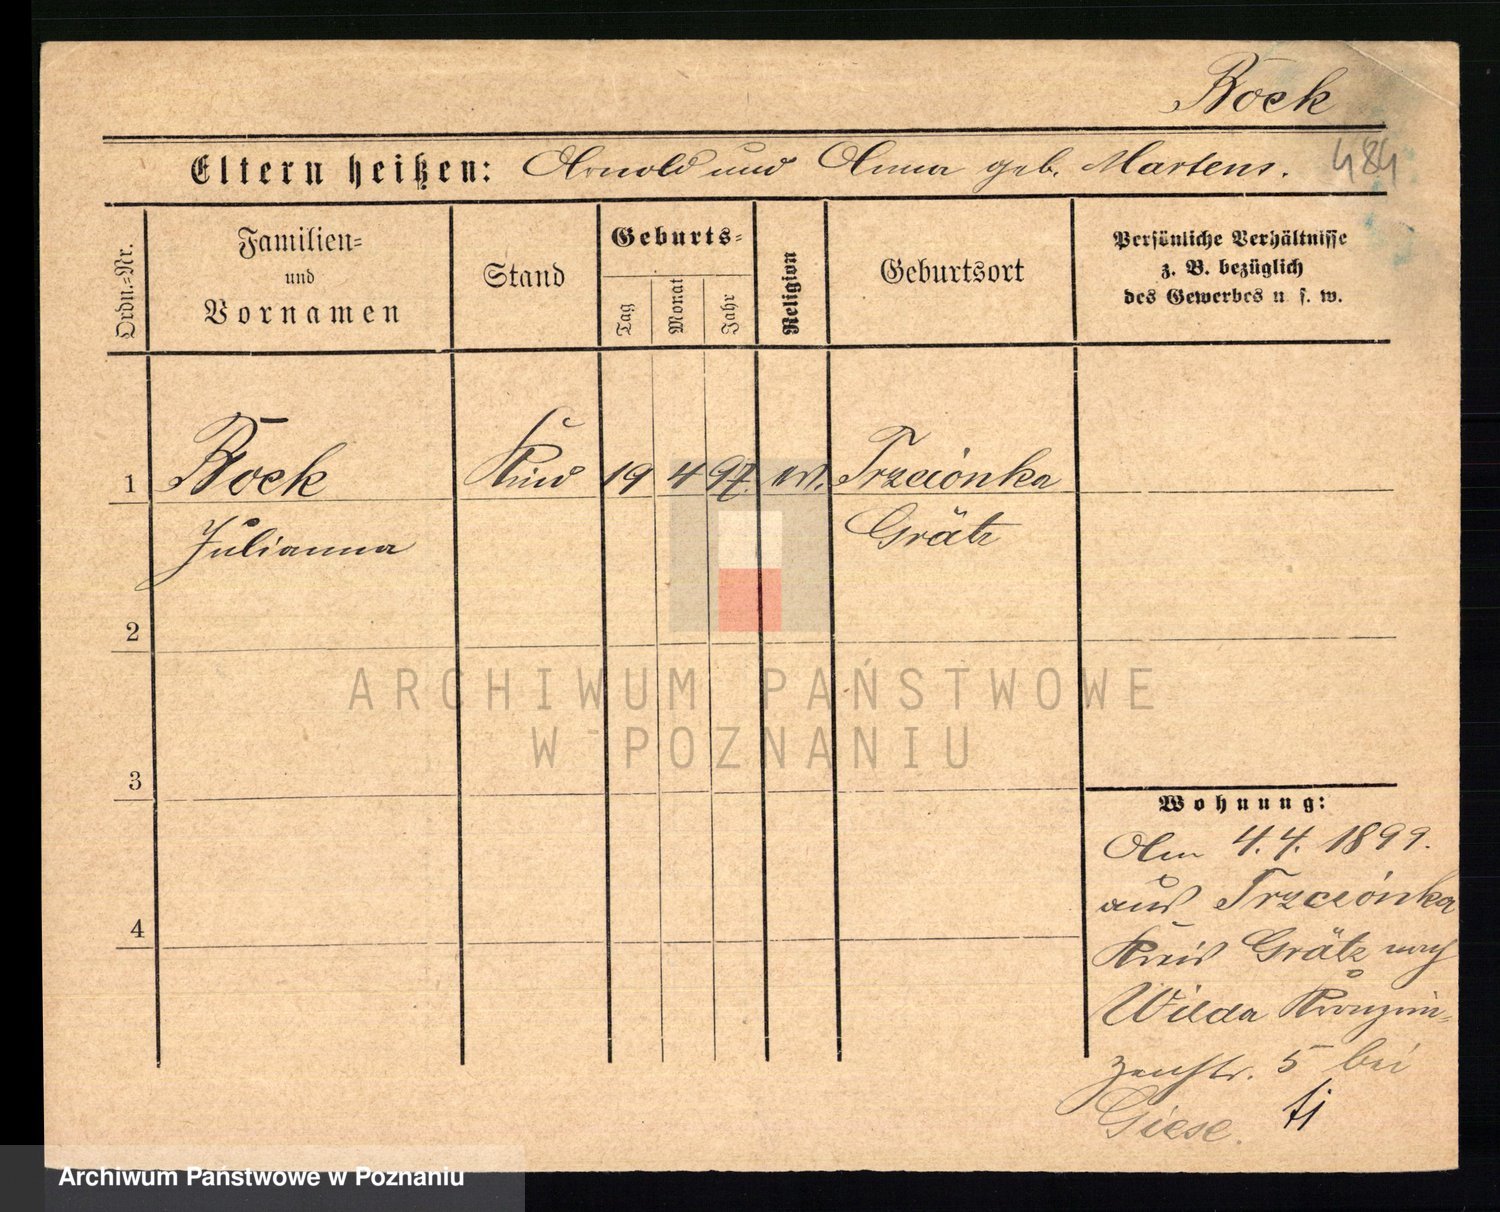 Bock
Eltern heißen: Arnold und Anna geb. Martens.
484
Ordn.-Nr.
Familien-
und
Vornamen
Stand
Geburts-
Tag
Monat
Jahr
Religion
Geburtsort
Persönliche Verhältnisse
z. B. bezüglich
des Gewerbes u. s. w.
1 Bock Kind 19 4 97. ev. Trzciónka
Julianna Grätz
2
3
4
ARCHIWUM PAŃSTWOWE
W POZNANIU
Wohnung:
Am 4.4. 1899.
aus Trzciónka
Kreis Grätz nach
Wilda Kronprin-
zenstr. 5 bei
Giese.
Archiwum Państwowe w Poznaniu